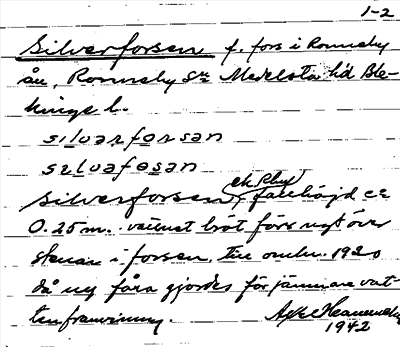 1-2
Silverforsen f. fors i Ronneby
ån, Ronneby sn Medelsta hd Ble-
kinge l.
silvarforsan
silvafosan
Silverforsen, fallhöjd ca
0.25 m. vattnet bröt förr ugt över
stenar i forsen, till omkr. 1920
då ny fåra gjordes för jämnare vat-
tenframrinning.
1942